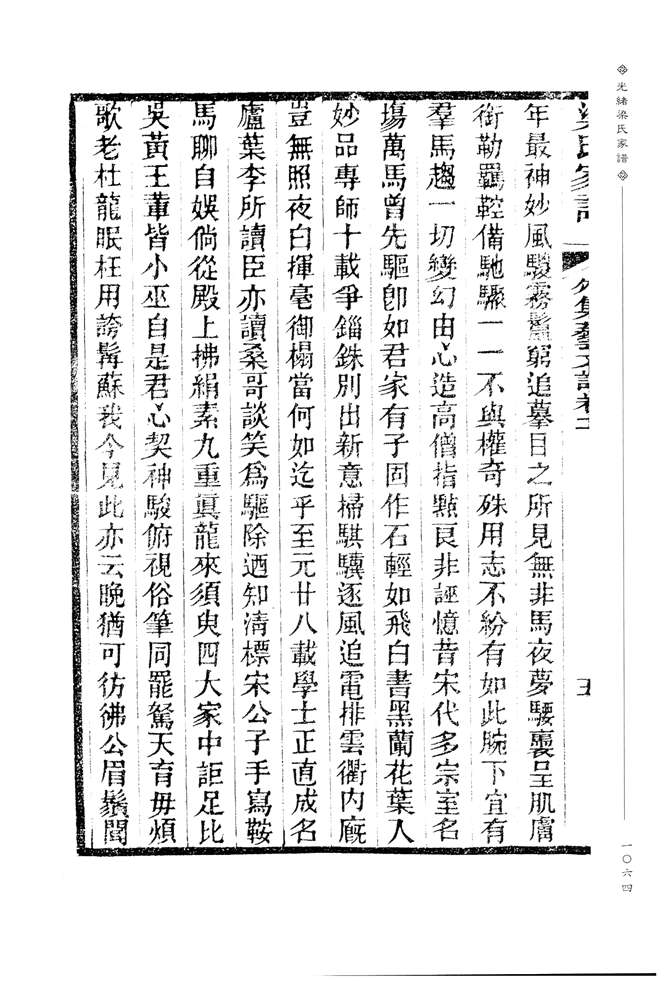 光緒梁氏家譜
一〇六四
梁氏家譜 外集藝文譜卷二 五
年最神妙風騣霧鬣窮追摹目之所見無非馬夜夢騕褭呈肌膚
銜勒羈鞚備馳驟一一不與權奇殊用志不紛有如此腕下宜有
羣馬趨一切變幻由心造高僧指點良非誣憶昔宋代多宗室名
塲萬馬曾先驅卽如君家有子固作石輕如飛白書墨蘭花葉人
妙品專師十載爭錙銖別出新意掃騏驥逐風追電排雲衢內廐
豈無照夜白揮毫御榻當何如迄乎至元廿八載學士正直成名
廬葉李所讀臣亦讀桑哥談笑爲驅除迺知淸標宋公子手寫鞍
馬聊自娛倘從殿上拂絹素九重眞龍來須臾四大家中詎足比
吳黃王輩皆小巫自是君心契神駿俯視俗筆同罷駑天育毋煩
歌老杜龍眠枉用誇髯蘇我今見此亦云晚猶可彷彿公眉鬚聞